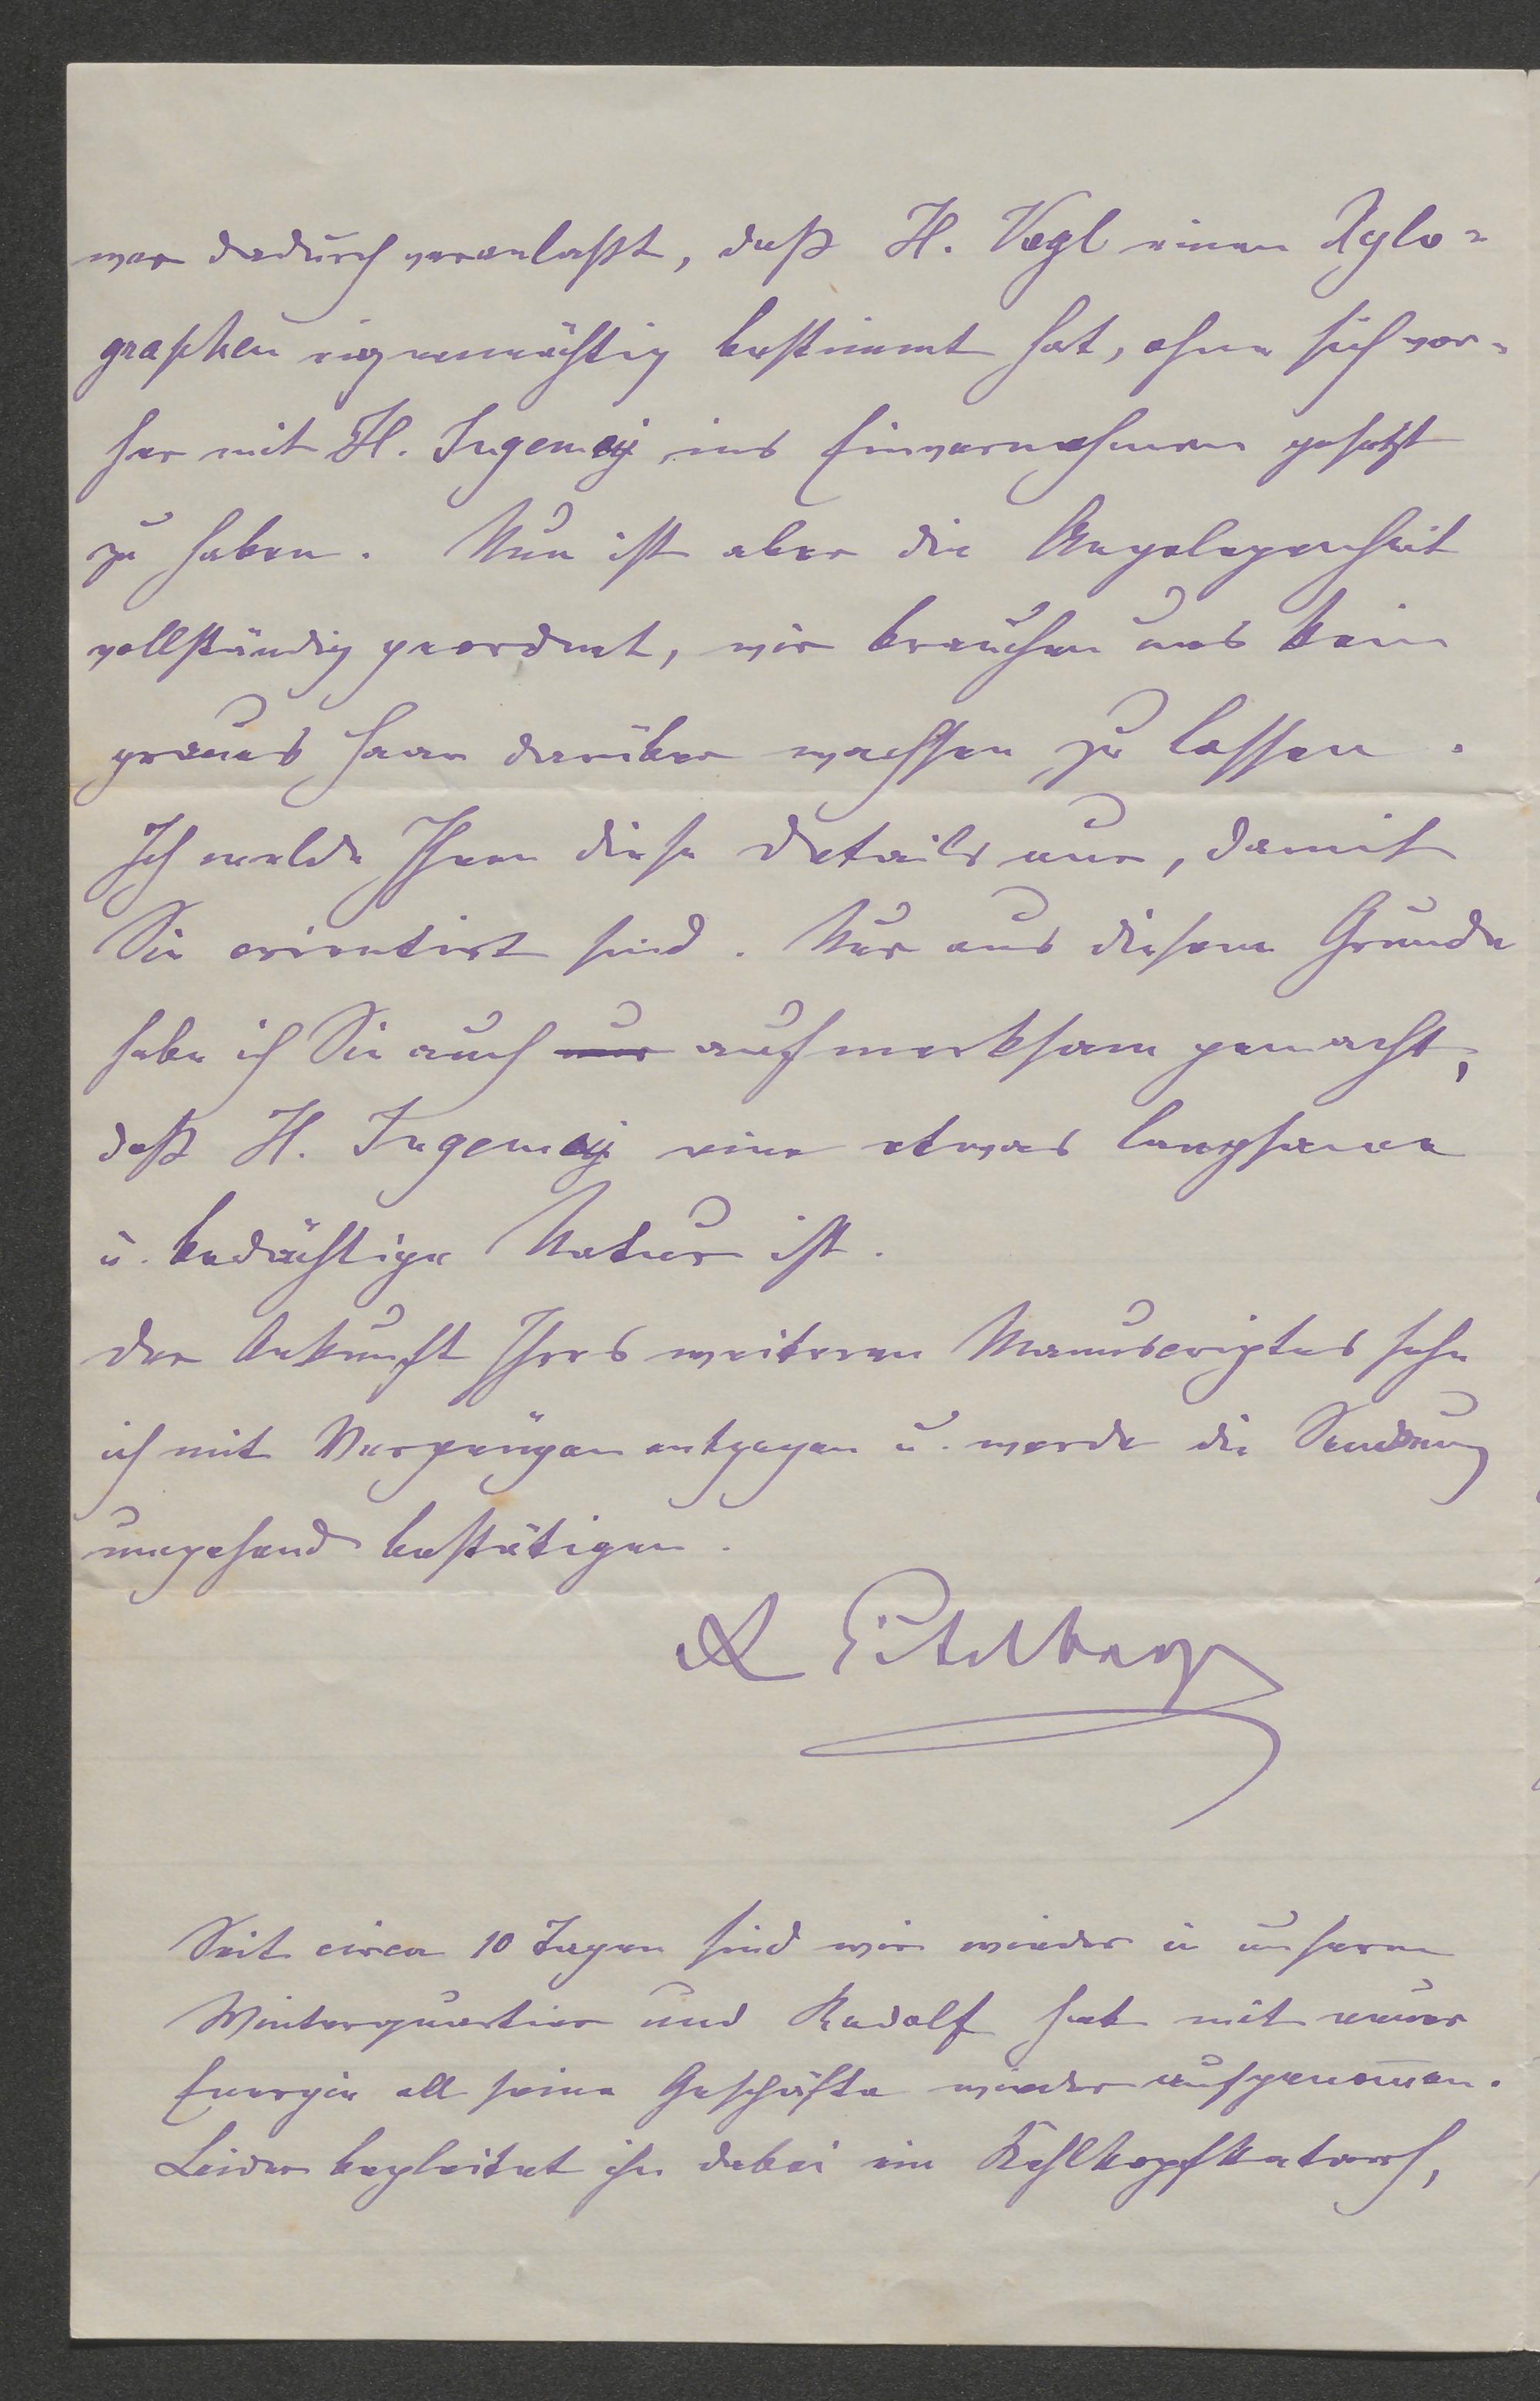 war dadurch veranlaßt, daß H. Vogl einen Xylo=
graphen eigenmächtig bestimmt hat, ohne sich vor=
her mit H. Jngemey ins Einvernehmen gesetzt
zu haben. Nun ist aber die Angelegenheit
vollständig geordnet, wir brauchen uns kein
graues Haar darüber wachsen zu lassen.
Ich melde Ihnen diese Details nur, damit
Sie orientirt sind. Nur aus diesem Grunde
habe ich Sie auch nur aufmerksam gemacht,
daß H. Jngemey eine etwas langsame
u. bedächtige Natur ist.
Der Ankunft Ihres weiteren Manuscriptes sehe
ich mit Vergnügen entgegen u. werde die Sendung
umgehend bestätigen.
R Eitelberger
Seit circa 10 Tagen sind wir wieder in unserem
Winterquartier und Rudolf hat mit neuer
Energie all seine Geschäfte wieder aufgenom̄en.
Leider begleitet ihn dabei ein Kehlkopfkatarrh,